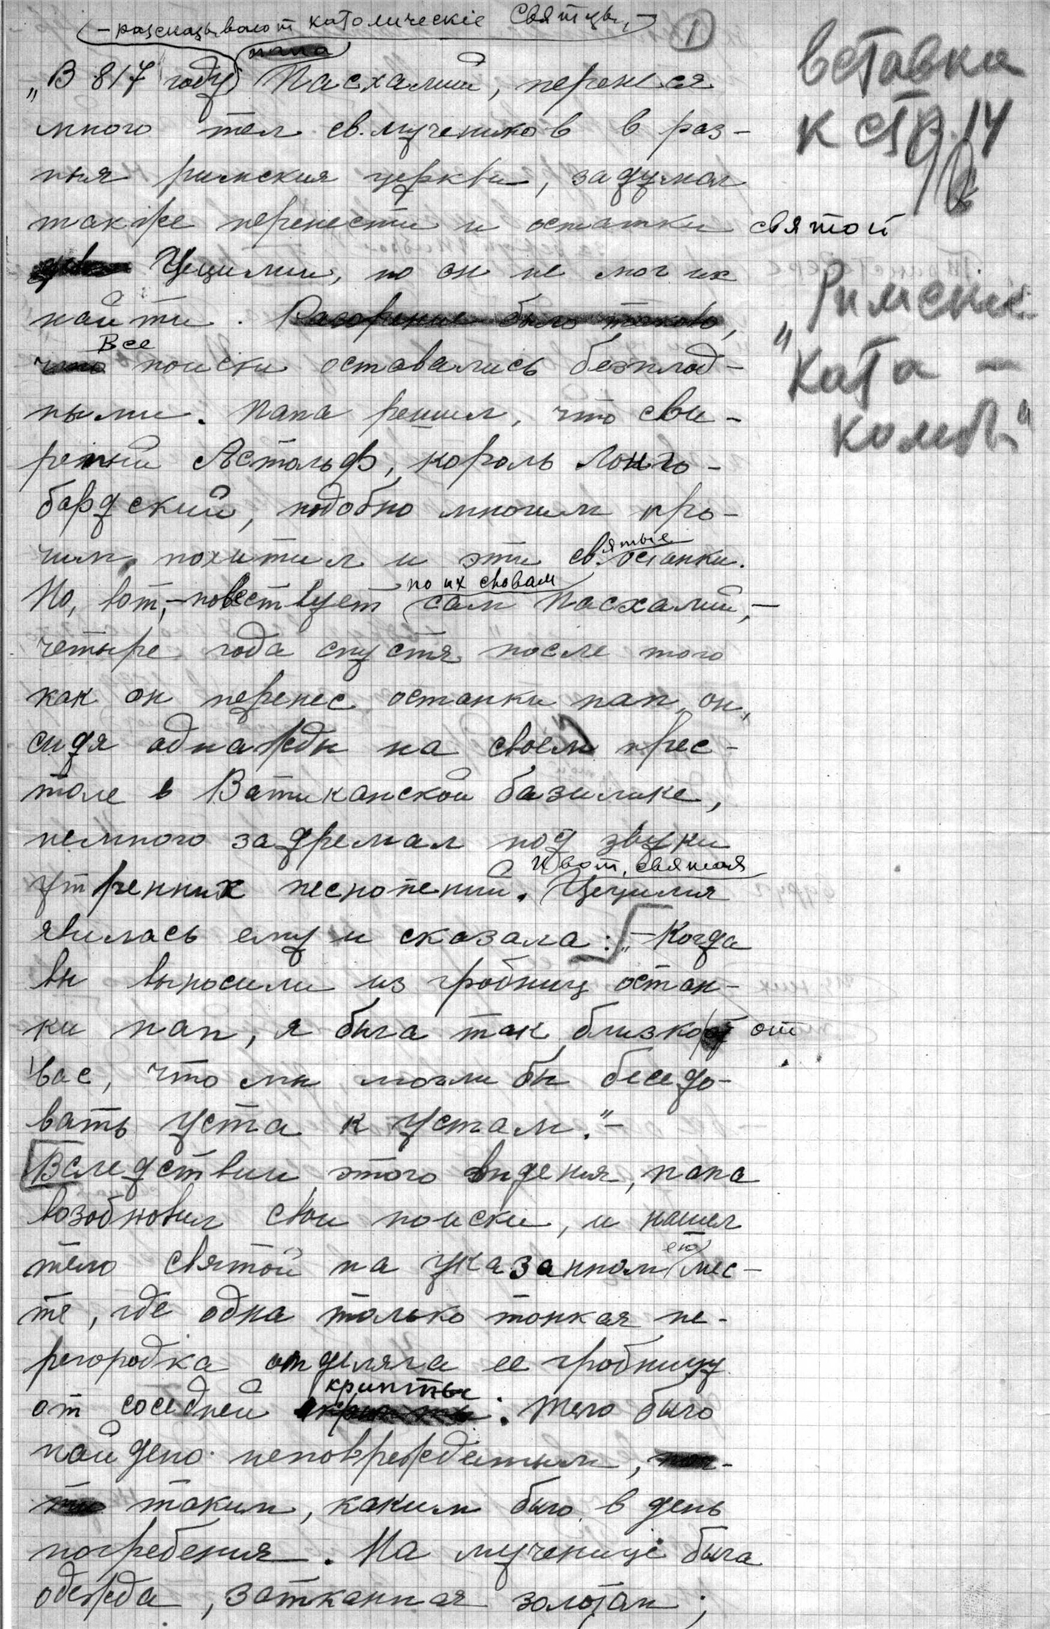 – разсказывают католическіе Святцы, –
1
папа
„В 817 году Пасхалий, перенеся
много тел св. мучеников в раз-
ныя римския церкви, задумал
также перенести и останки святой
Цецилии, но он не мог их
найти. Разорение было таково,
Все
что поиски оставались безплод-
ными. Папа решил, что сви-
репый Астольф, король Лонго-
бардский, подобно многим про-
чим, похитил и эти святые останки.
по их словам
Но, вот, – повествует сам Пасхалий, –
четыре года спустя после того
как он перенес останки пап, он,
сидя однажды на своем прес-
толе в Ватиканской базилике,
немного задремал под звуки
И вот, святая
утренних песнопений. Цецилия
явилась ему и сказала: „– Когда
вы выносили из гробниц остан-
ки пап, я была так близко от
вас, что мы могли бы беседо-
вать уста к устам.“ –
Вследствии этого видения, папа
возобновил свои поиски, и нашел
ею
тело святой на указанном мес-
те, где одна только тонкая пе-
регородка отделяла ее гробницу
крипты
от соседней крипты. Тело было
найдено неповрежденным,
таким, каким было в день
погребения. На мученице была
одежда, затканная золотом;
вставка
к стр. 14
„Римские
Ката-
комбы“